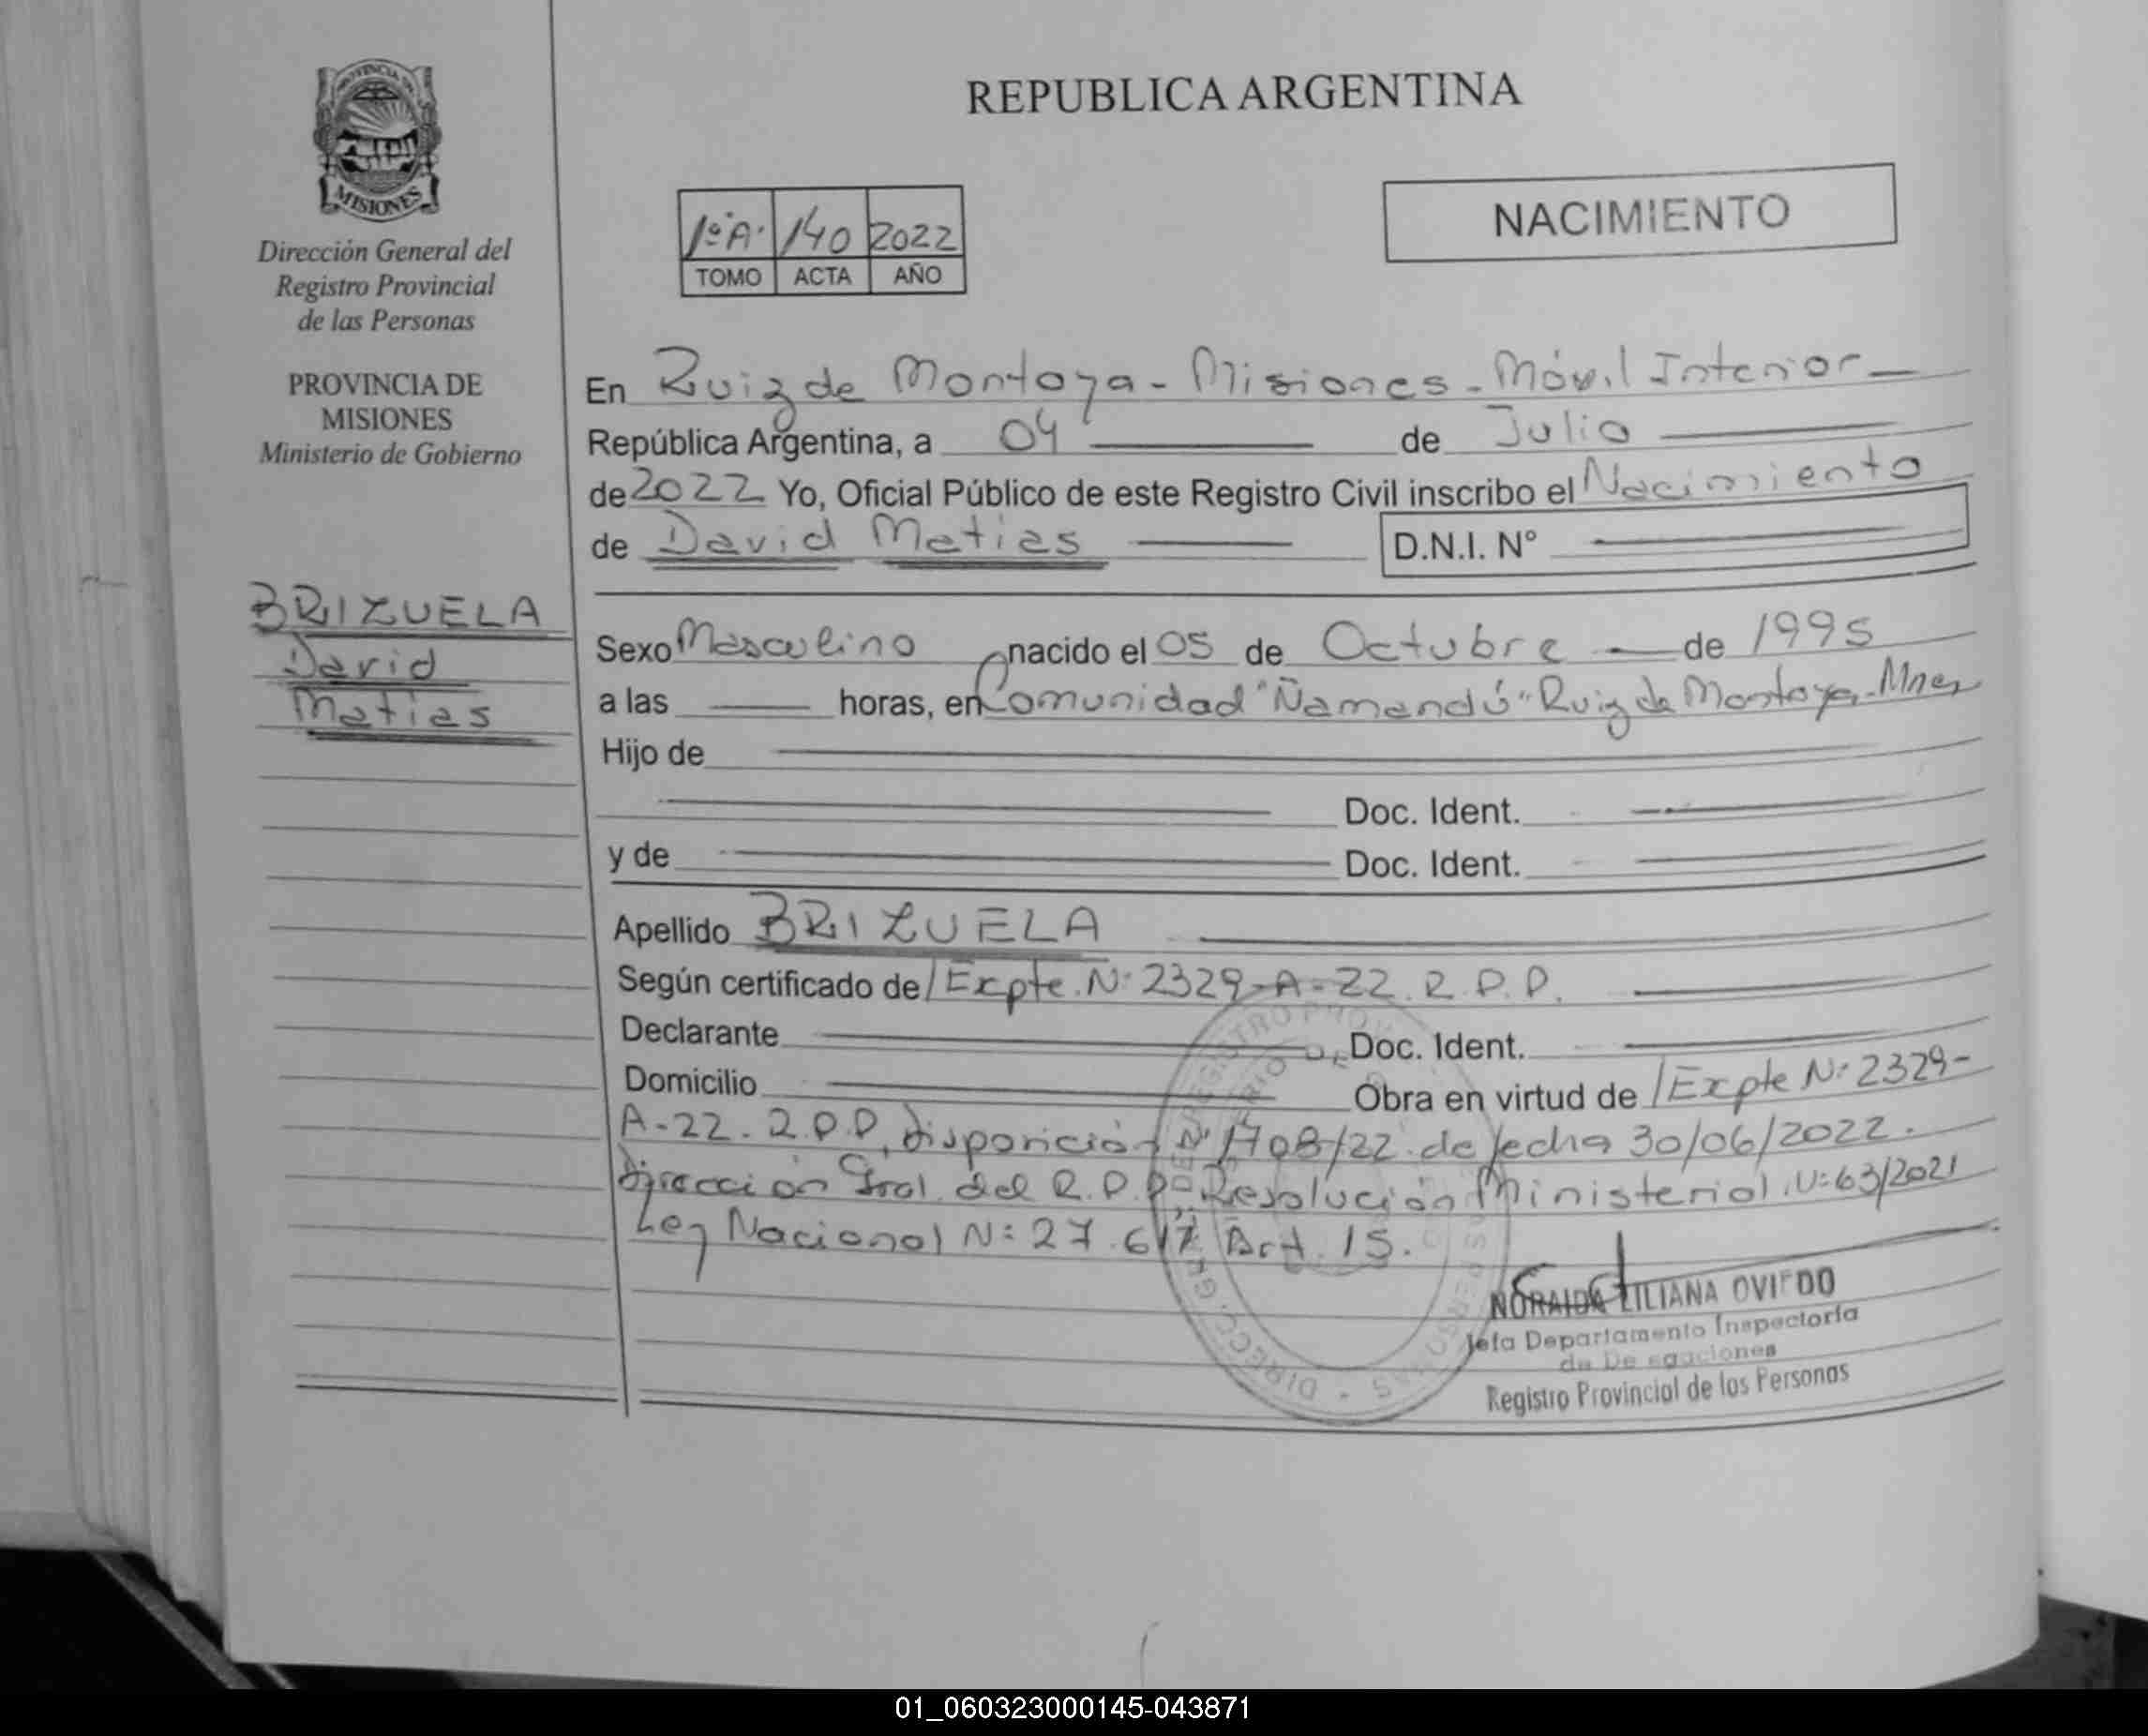 PROVINCIA DE
MISIONES
Dirección General del
Registro Provincial
de las Personas
PROVINCIA DE
MISIONES
Ministerio de Gobierno
BRIZUELA
David
Matias
REPUBLICA ARGENTINA
1º A. 140 2022
TOMO ACTA AÑO
NACIMIENTO
En Ruiz de Montoya - Misiones - Móvil Interior
República Argentina, a 04 de Julio
de 2022 Yo, Oficial Público de este Registro Civil inscribo el Nacimiento
de David Matias D.N.I. Nº
Sexo Masculino nacido el 05 de Octubre de 1995
a las horas, en Comunidad "Ñamandú" Ruiz de Montoya - Mnes
Hijo de
Doc. Ident.
y de Doc. Ident.
Apellido BRIZUELA
Según certificado de / Expte. Nº 2329-A-22. R.P.P.
Declarante Doc. Ident.
Domicilio Obra en virtud de / Expte Nº 2329-
A-22. R.P.P, disposición Nº 1708/22 de fecha 30/06/2022.
Dirección Gral. del R.P.P. Resolución Ministerial Nº 63/2021
Ley Nacional Nº 27.617 Art. 15.
NORAIDA LILIANA OVIEDO
Jefa Departamento Inspectoría
de Delegaciones
Registro Provincial de las Personas
01_060323000145-043871